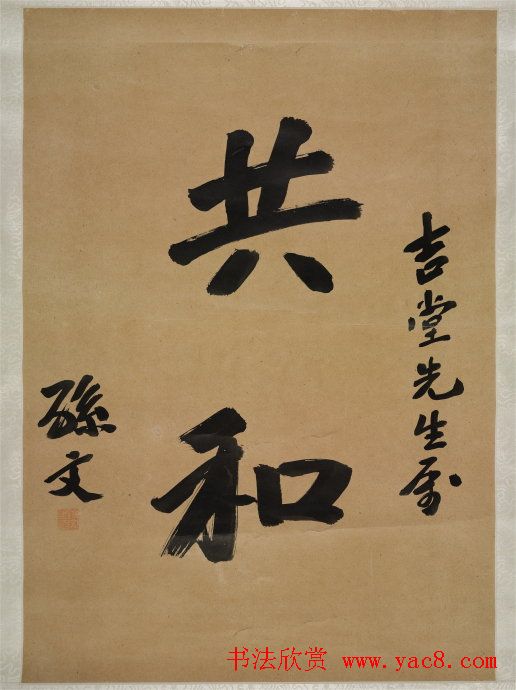 吉堂先生属
共和
孫文
书法欣赏 www.yac8.com